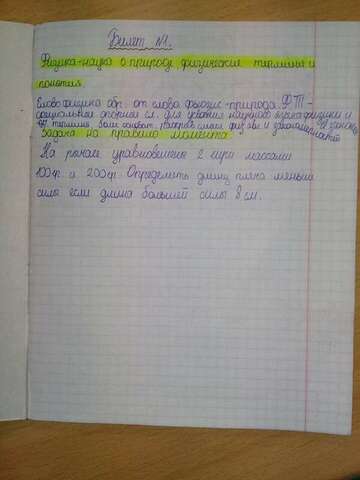 Билет №1.
Физика-наука о природе, физические термины и
понятия.
Слово физика обр. от слова фюзис-природа. ФТ-
специальные опорные сл. для усвоения научного языка физики и
ФТ термины более раскрыв. смысл физ. яв. и закономерностей
Задача на правило моментов
На рычаге уравновешено 2 гири массами
100гр. и 200гр. Определить длину плеча меньшей
силы если длина большей силы 8 см.